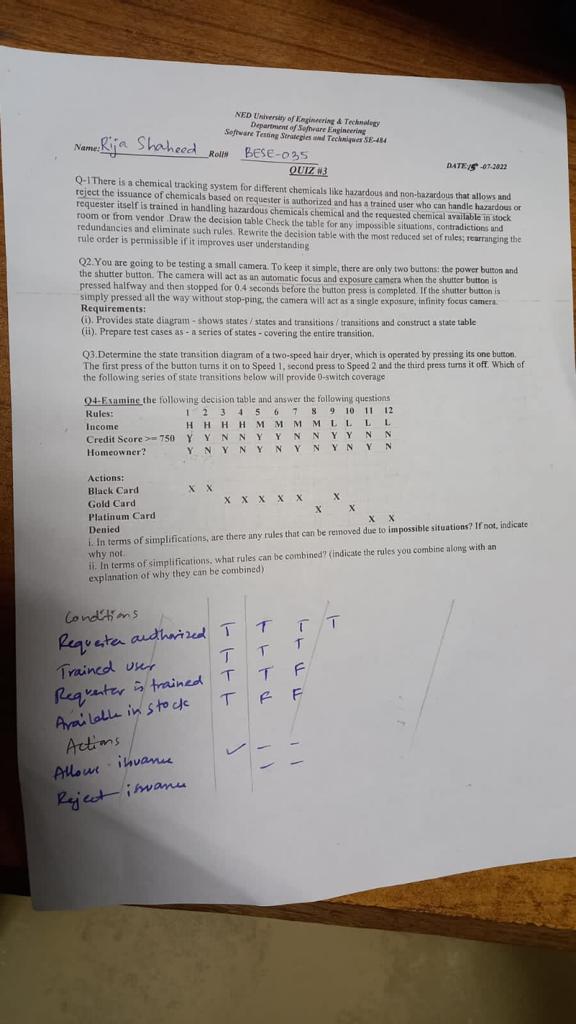 NED University of Engineering & Technology
Department of Software Engineering
Software Testing Strategies and Techniques SE-484
Name: Rija Shaheed Roll# BESE-035
DATE: 15-07-2022
QUIZ #3
Q-1There is a chemical tracking system for different chemicals like hazardous and non-hazardous that allows and
reject the issuance of chemicals based on requester is authorized and has a trained user who can handle hazardous or
requester itself is trained in handling hazardous chemicals chemical and the requested chemical available in stock
room or from vendor .Draw the decision table Check the table for any impossible situations, contradictions and
redundancies and eliminate such rules. Rewrite the decision table with the most reduced set of rules; rearranging the
rule order is permissible if it improves user understanding
Q2.You are going to be testing a small camera. To keep it simple, there are only two buttons: the power button and
the shutter button. The camera will act as an automatic focus and exposure camera when the shutter button is
pressed halfway and then stopped for 0.4 seconds before the button press is completed. If the shutter button is
simply pressed all the way without stop-ping, the camera will act as a single exposure, infinity focus camera.
Requirements:
(i). Provides state diagram - shows states / states and transitions / transitions and construct a state table
(ii). Prepare test cases as - a series of states - covering the entire transition.
Q3.Determine the state transition diagram of a two-speed hair dryer, which is operated by pressing its one button.
The first press of the button turns it on to Speed 1, second press to Speed 2 and the third press turns it off. Which of
the following series of state transitions below will provide 0-switch coverage
Q4-Examine the following decision table and answer the following questions
Rules: 1 2 3 4 5 6 7 8 9 10 11 12
Income H H H H M M M M L L L L
Credit Score >= 750 Y Y N N Y Y N N Y Y N N
Homeowner? Y N Y N Y N Y N Y N Y N
Actions:
Black Card X X
Gold Card X X X X X X
Platinum Card X X
Denied X X
i. In terms of simplifications, are there any rules that can be removed due to impossible situations? If not, indicate
why not.
ii. In terms of simplifications, what rules can be combined? (indicate the rules you combine along with an
explanation of why they can be combined)
Conditions
Requester authorized T T T T
Trained user T T T
Requester is trained T T F
Available in stock T F F
Actions
Allows issuance ✓ – –
Reject issuance – –